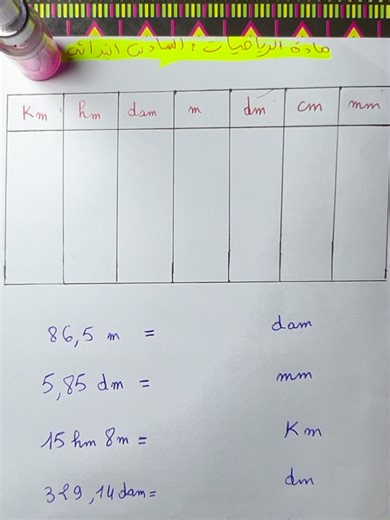 مادة الرياضيات: السادس ابتدائي
Km hm dam m dm cm mm
86,5 m = dam
5,85 dm = mm
15 hm 8m = Km
329,14 dam = dm